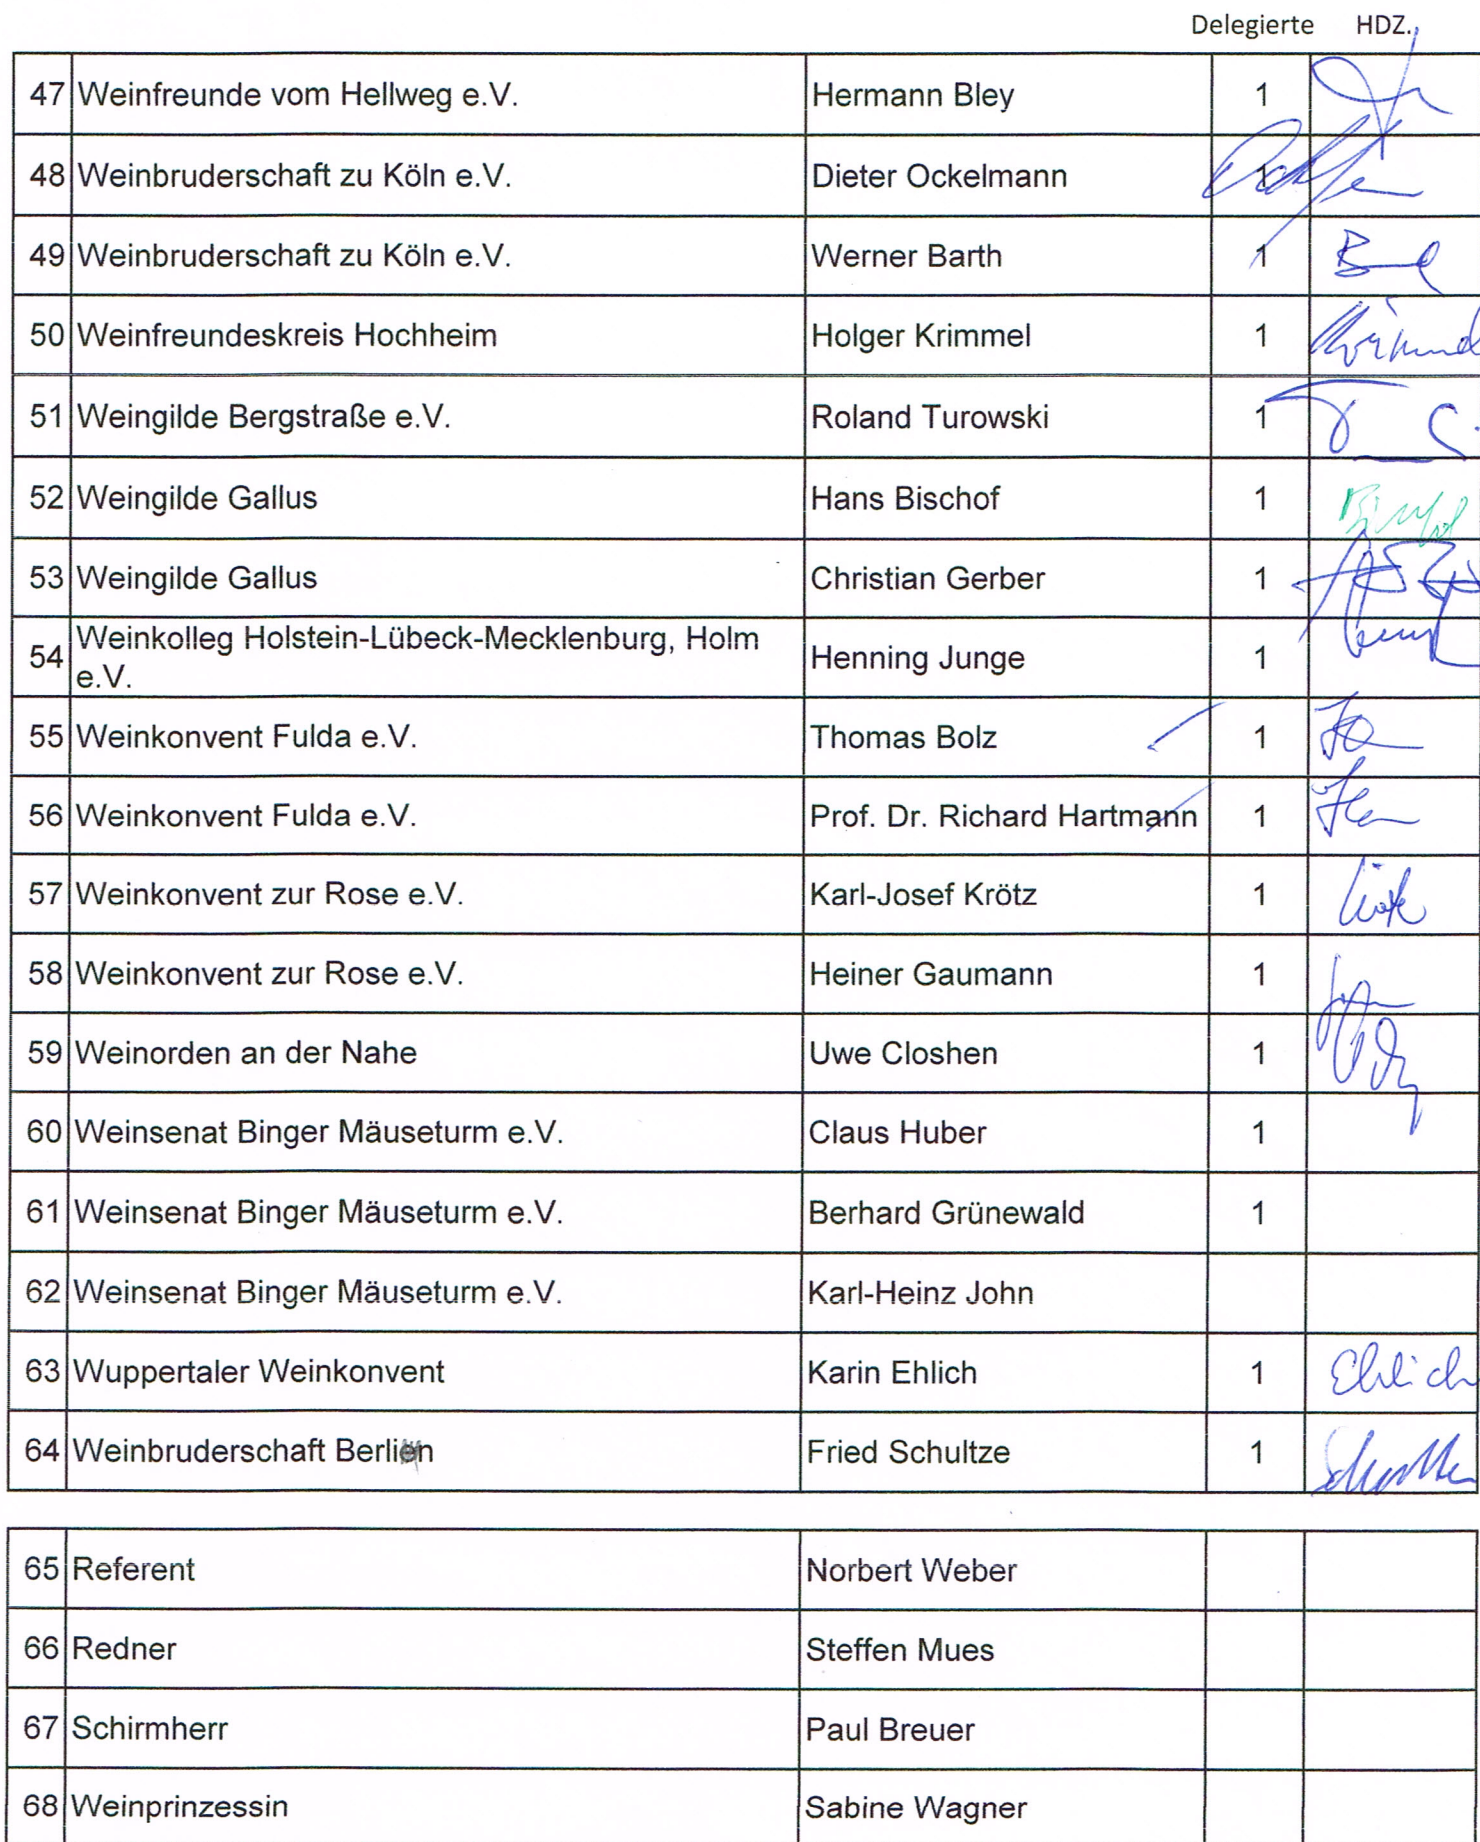 Delegierte HDZ.
47 Weinfreunde vom Hellweg e.V. Hermann Bley 1
48 Weinbruderschaft zu Köln e.V. Dieter Ockelmann 1
49 Weinbruderschaft zu Köln e.V. Werner Barth 1
50 Weinfreundeskreis Hochheim Holger Krimmel 1
51 Weingilde Bergstraße e.V. Roland Turowski 1
52 Weingilde Gallus Hans Bischof 1
53 Weingilde Gallus Christian Gerber 1
54 Weinkolleg Holstein-Lübeck-Mecklenburg, Holm
e.V. Henning Junge 1
55 Weinkonvent Fulda e.V. Thomas Bolz 1
56 Weinkonvent Fulda e.V. Prof. Dr. Richard Hartmann 1
57 Weinkonvent zur Rose e.V. Karl-Josef Krötz 1
58 Weinkonvent zur Rose e.V. Heiner Gaumann 1
59 Weinorden an der Nahe Uwe Closhen 1
60 Weinsenat Binger Mäuseturm e.V. Claus Huber 1
61 Weinsenat Binger Mäuseturm e.V. Berhard Grünewald 1
62 Weinsenat Binger Mäuseturm e.V. Karl-Heinz John
63 Wuppertaler Weinkonvent Karin Ehlich 1 Ehlich
64 Weinbruderschaft Berlien Fried Schultze 1
65 Referent Norbert Weber
66 Redner Steffen Mues
67 Schirmherr Paul Breuer
68 Weinprinzessin Sabine Wagner